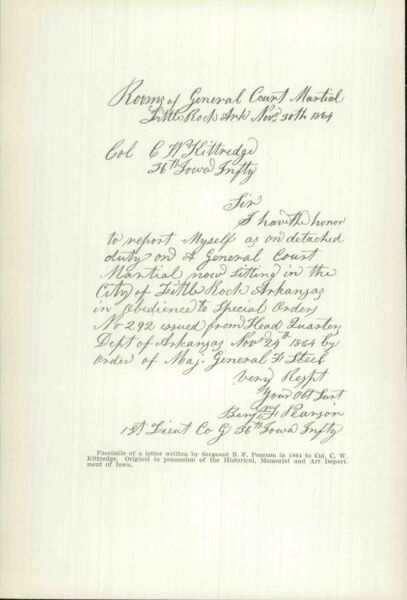 Rooms of General Court Martial
Little Rock Ark Nov. 30th 1864
Col C W Kittredge
36th Iowa Infty
Sir
I have the honor
to report Myself as on detached
duty on A General Court
Martial now sitting in the
City of Little Rock Arkansas
in Obedience to Special Orders
No 292 issued from Head Quarters
Dept of Arkansas Novr 24th 1864 by
Order of Maj. General F Steel
Very Respt
Your Obt Servt
Benj F Pearson
1st Lieut Co G 36th Iowa Infty
Facsimile of a letter written by Sergeant B. F. Pearson in 1864 to Col. C. W.
Kittredge. Original in possession of the Historical, Memorial and Art Depart-
ment of Iowa.